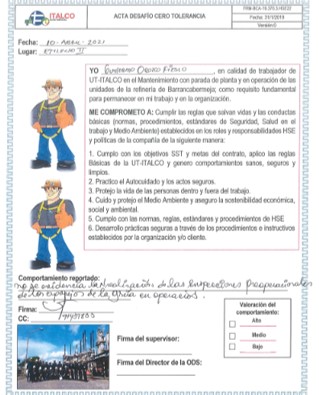 ITALCO
ACTA DESAFÍO CERO TOLERANCIA
Fecha: 31/1/2019
Versión:0
Fecha: 10 - ABRIL - 2021
Lugar:
YO Guillermo, en calidad de trabajador de
UT-ITALCO en el Mantenimiento con parada de planta y en operación de las
unidades de la refinería de Barrancabermeja; como requisito fundamental
para permanecer en mi trabajo y en la organización.
ME COMPROMETO A: Cumplir las reglas que salvan vidas y las conductas
básicas (normas, procedimientos, estándares de Seguridad, Salud en el
trabajo y Medio Ambiente) establecidos en los roles y responsabilidades HSE
y políticas de la compañía de la siguiente manera:
1. Cumplo con los objetivos SST y metas del contrato, aplico las reglas
Básicas de la UT-ITALCO y genero comportamientos sanos, seguros y
limpios.
2. Practico el Autocuidado y los actos seguros.
3. Protejo la vida de las personas dentro y fuera del trabajo.
4. Cuido y protejo el Medio Ambiente y aseguro la sostenibilidad económica,
social y ambiental.
5. Cumplo con las normas, reglas, estándares y procedimientos de HSE
6. Desarrollo prácticas seguras a través de los procedimientos e instructivos
establecidos por la organización y/o cliente.
Comportamiento reportado:
no se evidencia la realización de las inspecciones preoperacionales
de los aparejos de la grúa en operación.
Firma:
CC:
Valoración del
comportamiento:
Alto
Medio
Bajo
Firma del supervisor:
Firma del Director de la ODS: